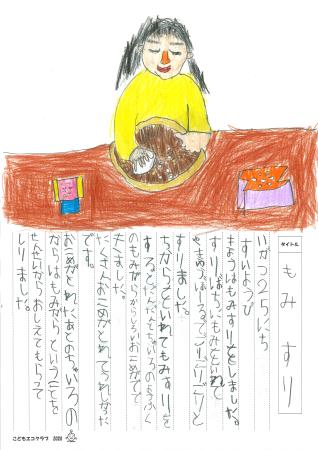 タイトル
もみすり
いがつ25にち
すいようび
きょうはもみすりをしました。
すりばちにもみをいれて
やきゅうぼーるでごりごりと
すりました。
ちからをいれてもみすりを
するとだんだんちゃいろのようふく
のもみがらからしろいおこめがでて
きました。
たくさんおこめがとれてうれしかった
です。
おこめがとれたあとのちゃいろの
からはもみがらということを
せんせいからおしえてもらって
しりました。
こどもエコクラブ 2020